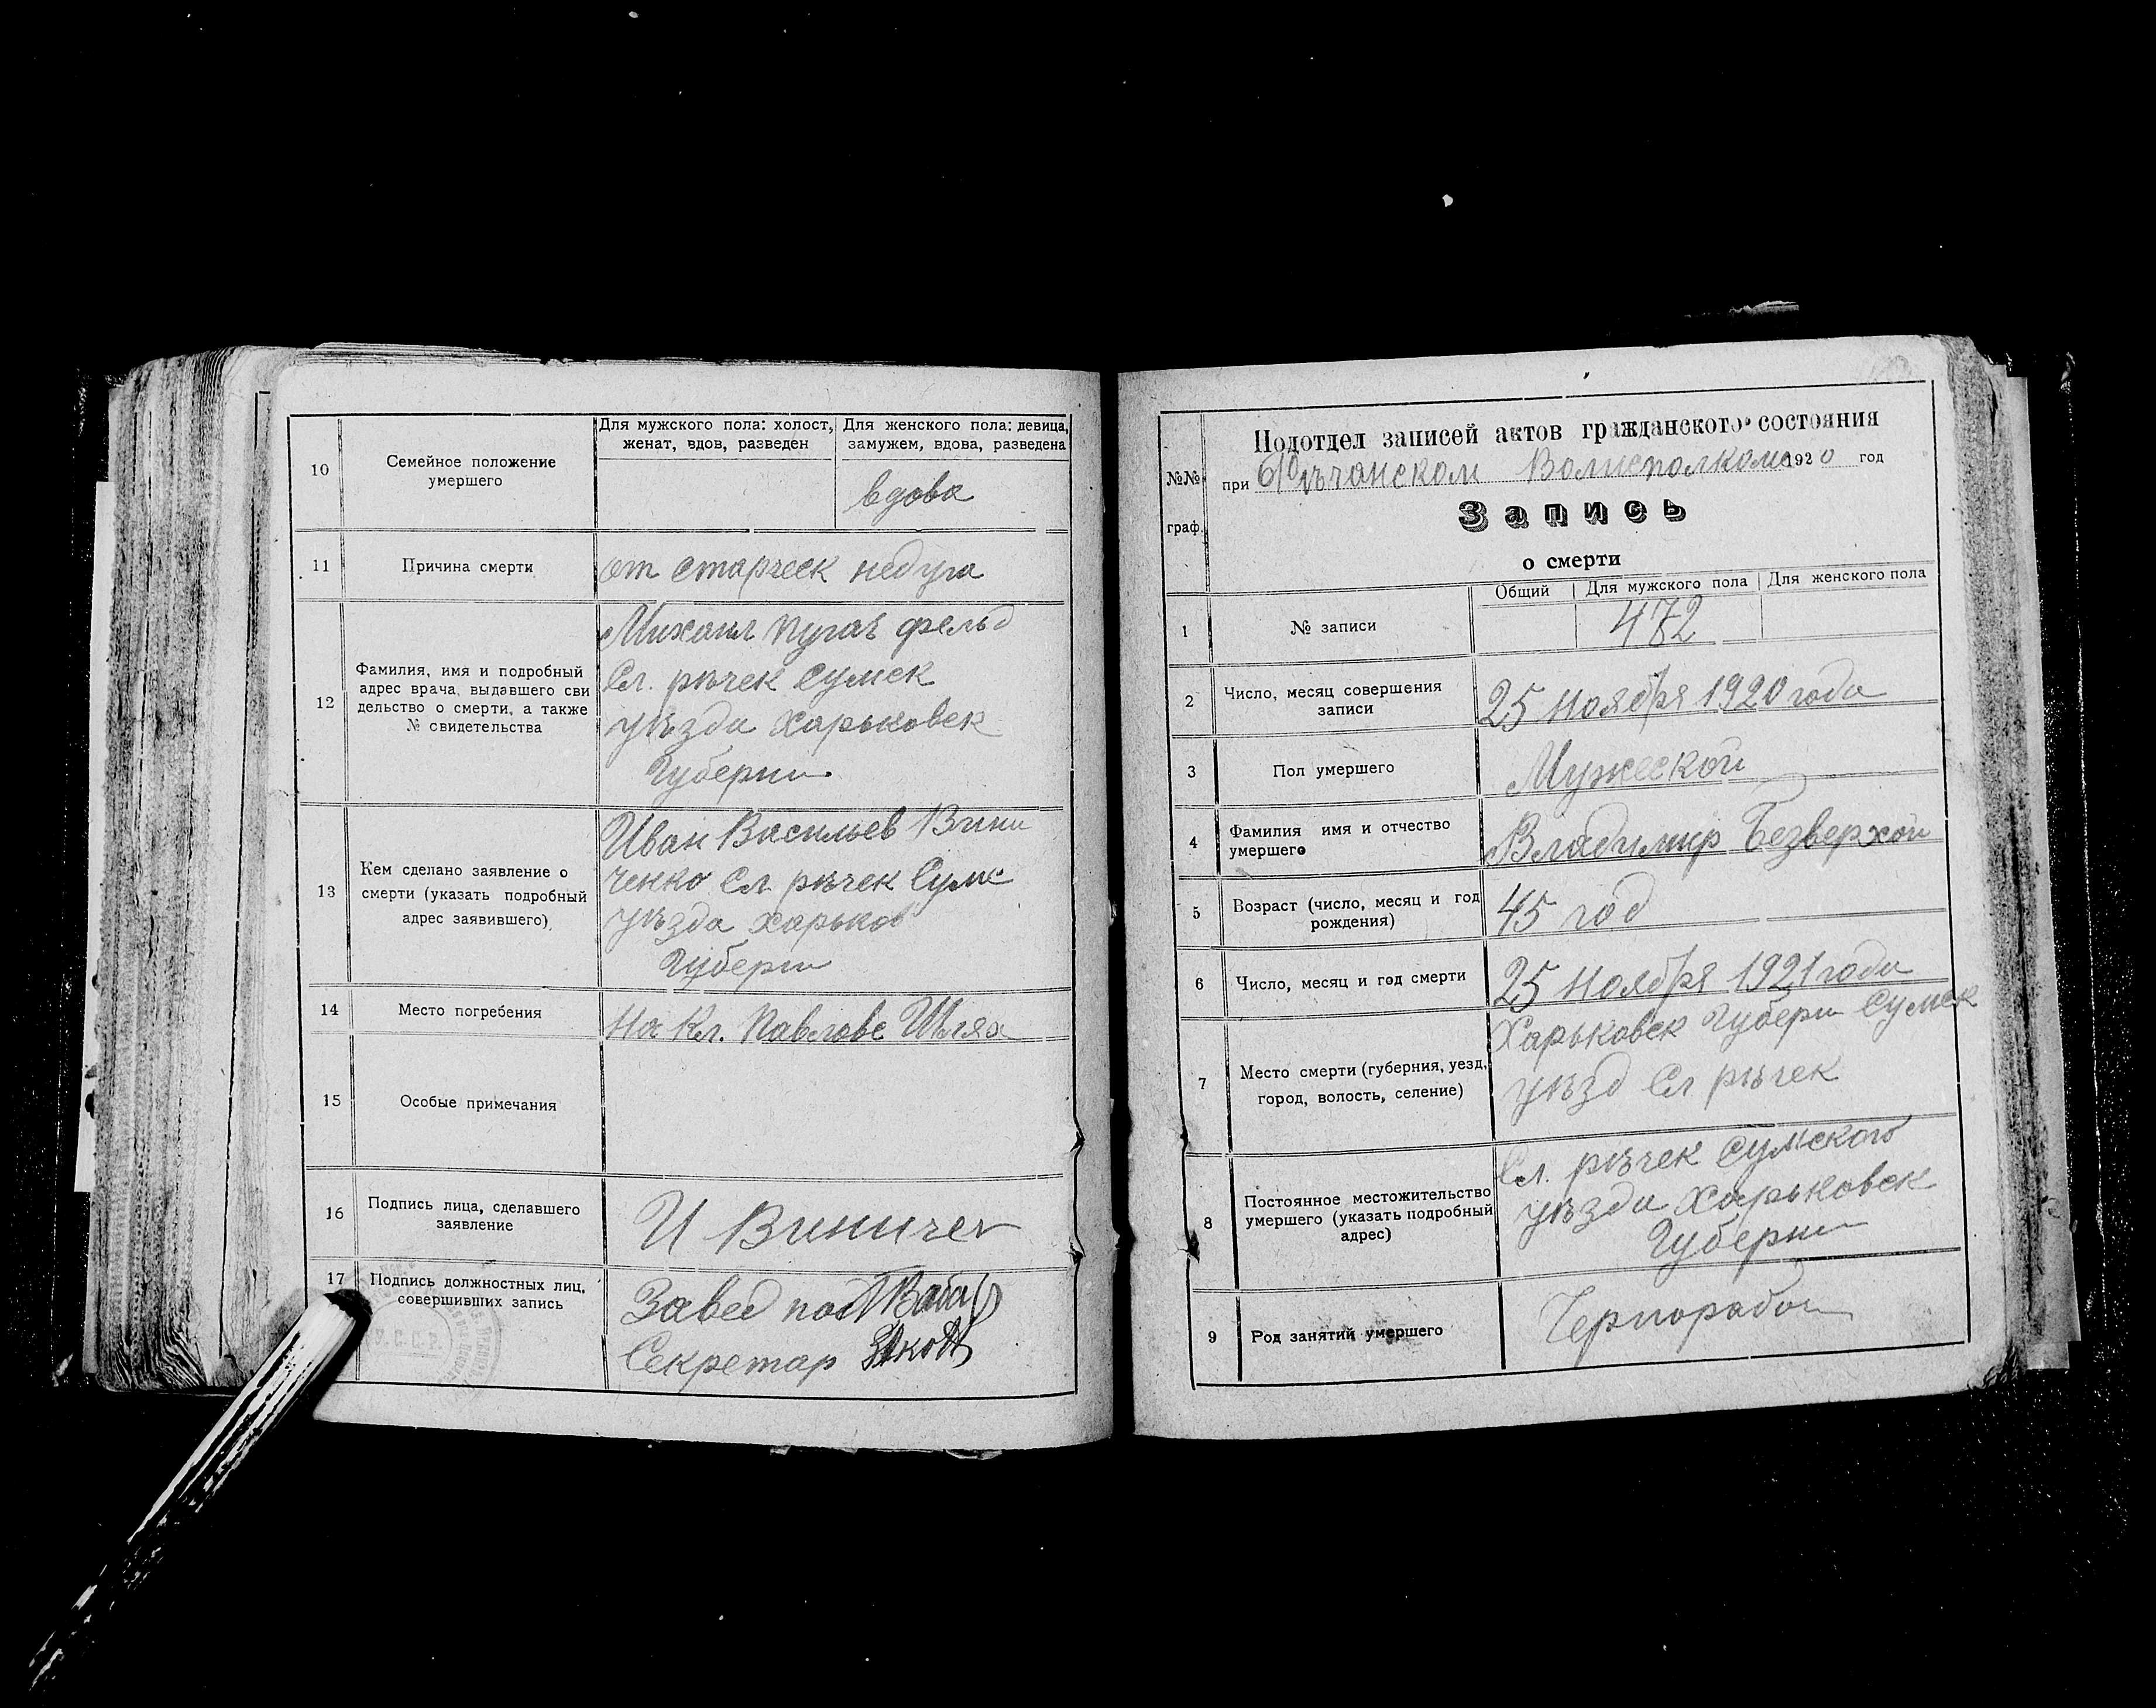 10
Семейное положение
умершего
Для мужского пола: холост,
женат, вдов, разведен
Для женского пола: девица,
замужем, вдова, разведена
вдова
11
Причина смерти
от старческ недуга
12
Фамилия, имя и подробный
адрес врача, выдавшего сви
дельство о смерти, а также
№ свидетельства
Михаил Пугач фельд
Сл. рѣчек Сумск
уѣзда Харьковск
Губерни
13
Кем сделано заявление о
смерти (указать подробный
адрес заявившего)
Иван Васильев Вини
ченко Сл. рѣчек Сумс
уѣзда Харьков
Губерни
14
Место погребения
На Кл. Павлове Шлях
15
Особые примечания
16
Подпись лица, сделавшего
заявление
И Виничен
17
Подпись должностных лиц,
совершивших запись
Завед под
Секретар
У.С.С.Р.
№№
граф.
Подотдел записей актов гражданского состояния
при Волисполкоме 1920 год
Запись
о смерти
Общий
Для мужского пола
Для женского пола
1
№ записи
472
2
Число, месяц совершения
записи
25 Ноября 1920 года
3
Пол умершего
Мужеской
4
Фамилия имя и отчество
умершего
Владимир Безверхой
5
Возраст (число, месяц и год
рождения)
45 год
6
Число, месяц и год смерти
25 Ноября 1921 года
7
Место смерти (губерния, уезд,
город, волость, селение)
Харьковск Губерн Сумск
уѣзд Сл рѣчек
8
Постоянное местожительство
умершего (указать подробный
адрес)
Сл. рѣчек Сумского
уѣзда Харьковск
Губерни
9
Род занятий умершего
Чернорабоч